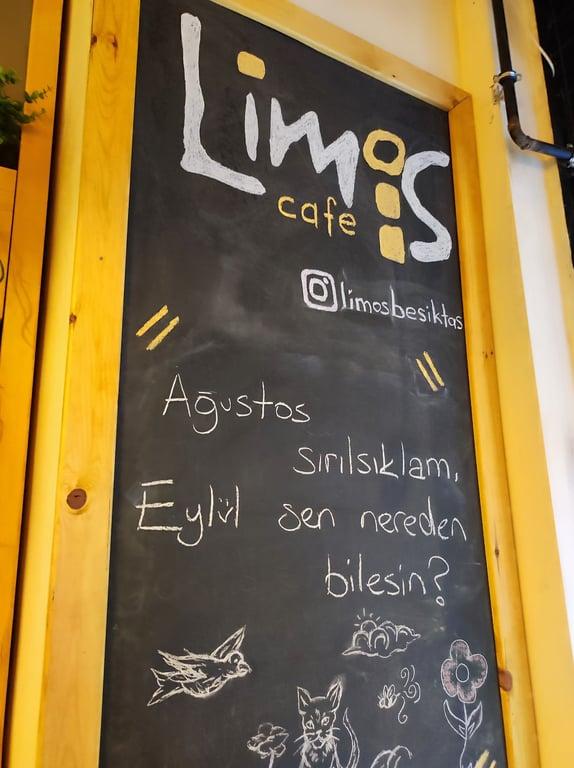 Limos
cafe
limosbesiktas
Ağustos
sırılsıklam,
Eylül sen nereden
bilesin?